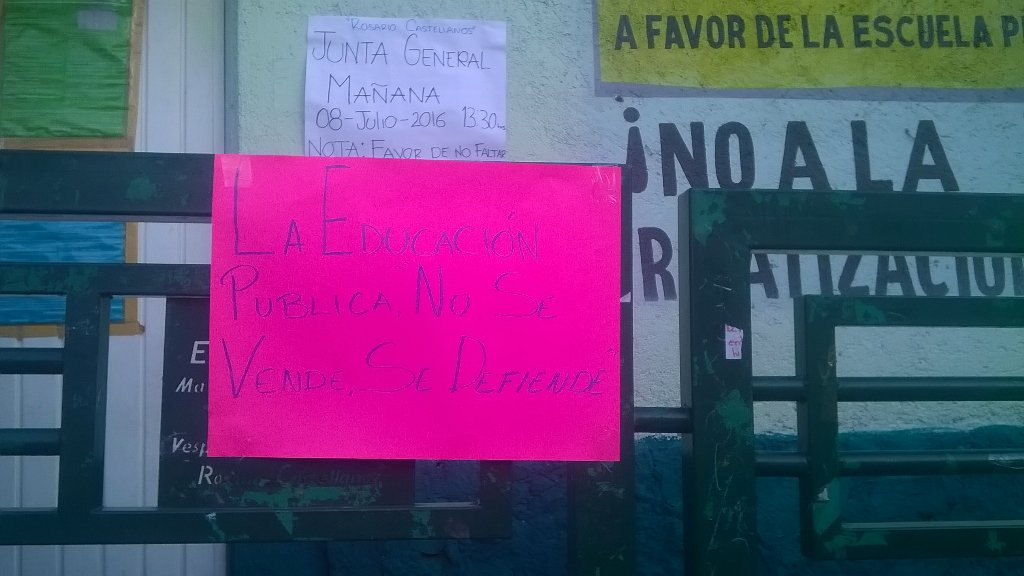 "Rosario Castellanos"
JUNTA GENERAL
MAÑANA
08-JULIO-2016 13:30hrs
NOTA: FAVOR DE NO FALTAR
A FAVOR DE LA ESCUELA P
¡NO A LA
R ATIZACION
LA EDUCACIÓN
PUBLICA, NO SE
VENDE, SE DEFIENDE
E
Ma
Vesp
Ro